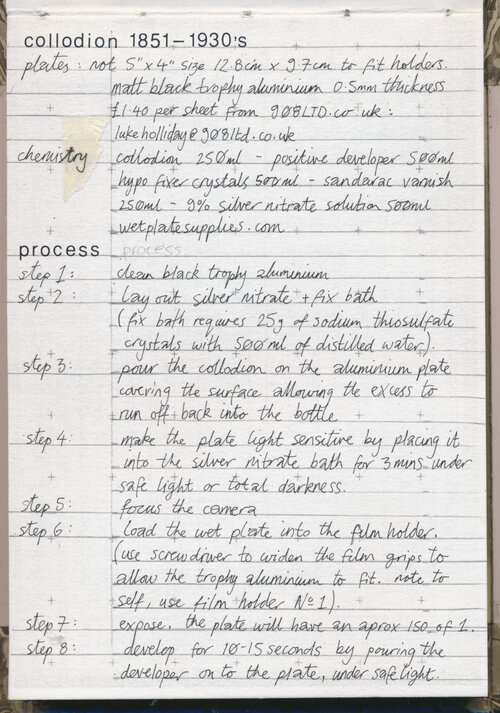 collodion 1851–1930's
plates : not 5"x4" size 12.8cm x 9.7cm to fit holders.
matt black trophy aluminium 0.5mm thickness
£1.40 per sheet from 908LTD.co.uk :
lukeholliday@908ltd.co.uk
chemistry collodion 250ml - positive developer 500ml
hypo fixer crystals 500ml - sandarac varnish
250ml - 9% silver nitrate solution 500ml
wetplatesupplies.com
process process.
step 1: clean black trophy aluminium
step 2: lay out silver nitrate + fix bath
(fix bath requires 25g of sodium thiosulfate
crystals with 500ml of distilled water).
step 3: pour the collodion on the aluminium plate
covering the surface allowing the excess to
run off back into the bottle
step 4: make the plate light sensitive by placing it
into the silver nitrate bath for 3 mins under
safe light or total darkness.
step 5: focus the camera
step 6: load the wet plate into the film holder.
(use screwdriver to widen the film grips to
allow the trophy aluminium to fit. note to
self, use film holder Nº 1).
step 7: expose. the plate will have an aprox ISO of 1.
step 8: develop for 10-15 seconds by pouring the
developer on to the plate, under safe light.